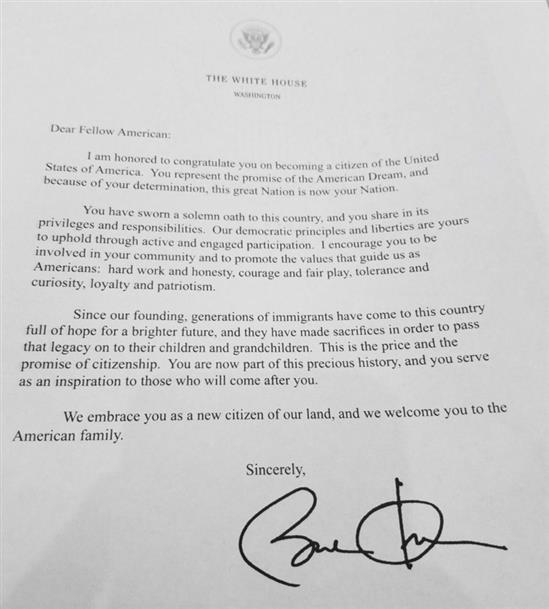 THE WHITE HOUSE
WASHINGTON
Dear Fellow American:
I am honored to congratulate you on becoming a citizen of the United
States of America. You represent the promise of the American Dream, and
because of your determination, this great Nation is now your Nation.
You have sworn a solemn oath to this country, and you share in its
privileges and responsibilities. Our democratic principles and liberties are yours
to uphold through active and engaged participation. I encourage you to be
involved in your community and to promote the values that guide us as
Americans: hard work and honesty, courage and fair play, tolerance and
curiosity, loyalty and patriotism.
Since our founding, generations of immigrants have come to this country
full of hope for a brighter future, and they have made sacrifices in order to pass
that legacy on to their children and grandchildren. This is the price and the
promise of citizenship. You are now part of this precious history, and you serve
as an inspiration to those who will come after you.
We embrace you as a new citizen of our land, and we welcome you to the
American family.
Sincerely,